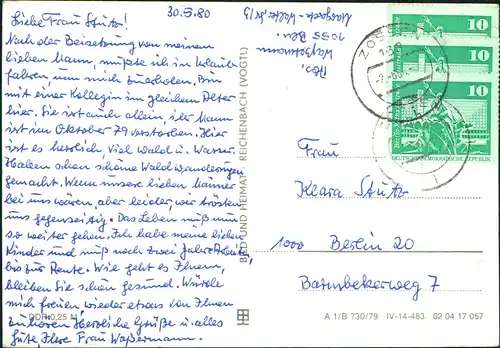 Liebe Frau Stutz!
30.5.80
Nach der Beisetzung von meinem
lieben Mann, mußte ich in Urlaub
fahren um mich zu erholen. Bin
mit einer Kollegin im gleichen Alter
hier. Sie ist auch allein, ihr Mann
ist im Oktober 79 verstorben. Hier
ist es herrlich, viel Wald u. Wasser.
Haben schon schöne Waldwanderungen
gemacht. Wenn unsere lieben Männer
bei uns waren, aber leider wir trösten
uns gegenseitig. Das Leben muß nun
so weiter gehen. Ich habe meine lieben
Kinder und muß noch zwei Jahre Arbeiten,
bis zur Rente. Wie geht es Ihnen,
bleiben Sie schön gesund. Würde
mich freuen wieder etwas von Ihnen
zu hören. Herzliche Grüße u. alles
Gute Ihre Frau Waßermann.
DDR 0,25 M
BILD UND HEIMAT REICHENBACH (VOGTL)
Abs.
1055 Bln.
10
10
10
DEUTSCHE DEMOKRATISCHE REPUBLIK
Frau
Klara Stutz
1000 Berlin 20
Barnbekerweg 7
A 1/B 730/79 IV-14-483 02 04 17 057